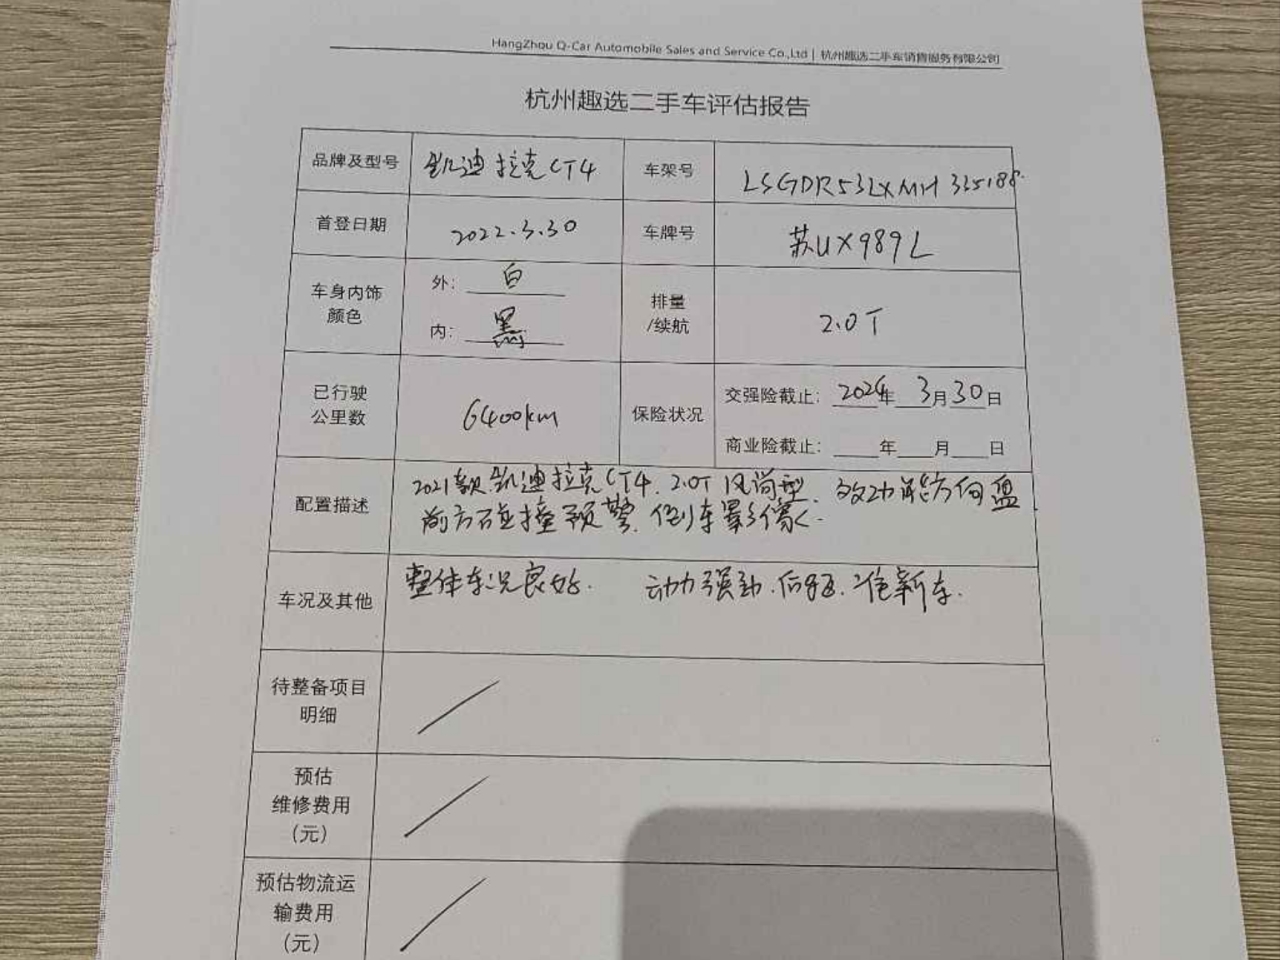 HangZhou Q-Car Automobile Sales and Service Co.,Ltd | 杭州趣选二手车销售服务有限公司
杭州趣选二手车评估报告
品牌及型号 凯迪拉克CT4 车架号 LSGDR53LXMH325188
首登日期 2022.3.30 车牌号 苏UX989L
车身内饰
颜色
外: 白
内: 黑
排量
/续航
2.0T
已行驶
公里数
6400km
保险状况
交强险截止: 2024年 3月30日
商业险截止: 年 月 日
配置描述
2021款凯迪拉克CT4. 2.0T 风尚型. 多功能方向盘
前方碰撞预警. 倒车影像.
车况及其他
整体车况良好. 动力强劲.后驱.准新车.
待整备项目
明细
预估
维修费用
(元)
预估物流运
输费用
(元)